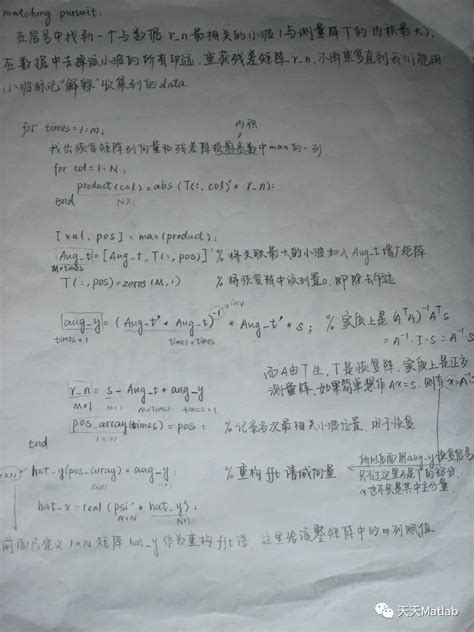 matching pursuit:
在信号中找到一个与数据r_n最相关的小波(与测量阵T的内积最大),
在数据中去掉该小波的所有印迹,重获残差矩阵r_n,不断重复直到我们能用
小波标记"解释"收集到的data
for times=1:M;
内积
找出恢复矩阵列向量和残差阵投影系数中max的一列
for col=1:N,
product(col)=abs(T(:,col)'*r_n);
end
N×1
[val, pos]=max(product);
Aug_t=[Aug_t, T(:,pos)] %将关联最大的小波加入Aug_t增广矩阵
M×times
T(:,pos)=zeros(M,1) %将恢复阵中该列置0,即除去印迹
aug_y=(Aug_t'*Aug_t)^-1 * Aug_t'*s; %实质上是(AᵀA)⁻¹Aᵀs
inv
times×1
times×times
=A⁻¹·I·s=A⁻¹s
而A由T生,T是恢复阵,实质上是正交
测量阵,如果简单想作Ax=s,则有x=A⁻¹s
r_n=s-Aug_t*aug_y
M×1 M×1 M×times times×1
pos_array(times)=pos; %记录各次最相关小波位置,用于恢复
end
所以后面用aug_y恢复信号
只不过这里A是T的部分,
x也不是其中主分量.
hat_y(pos_array)=aug_y; %重构fft谱域向量
1×N
hat_x=real(psi'*hat_y');
N×N N×1
前面已定义1×N矩阵hat_y作为重构fft谱,这里给该零矩阵中的m列赋值
天天Matlab